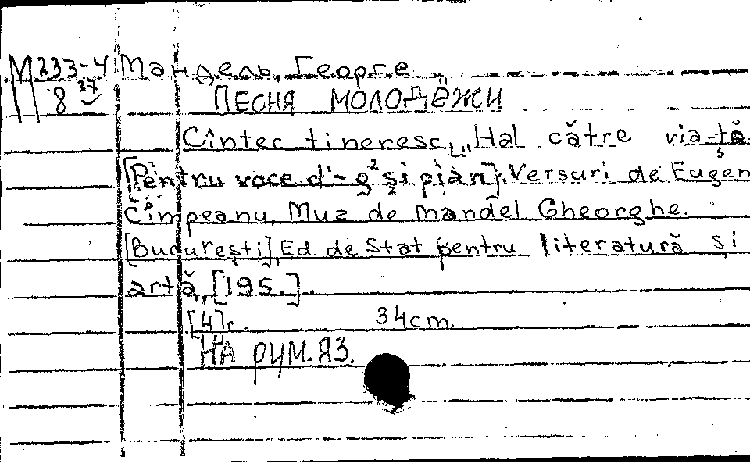 М233-4 Мандель, Георге
8 27 ПЕСНЯ МОЛОДЁЖИ
Cîntec tineresc „Hai către viaţă"
[Pentru voce d¹-g² şi pian]. Versuri de Eugen
Cîmpeanu, Muz de Mandel Gheorghe.
[Bucureşti], Ed de Stat pentru literatură şi
artă, [195.].
[4]
34cm.
НА РУМ. ЯЗ.